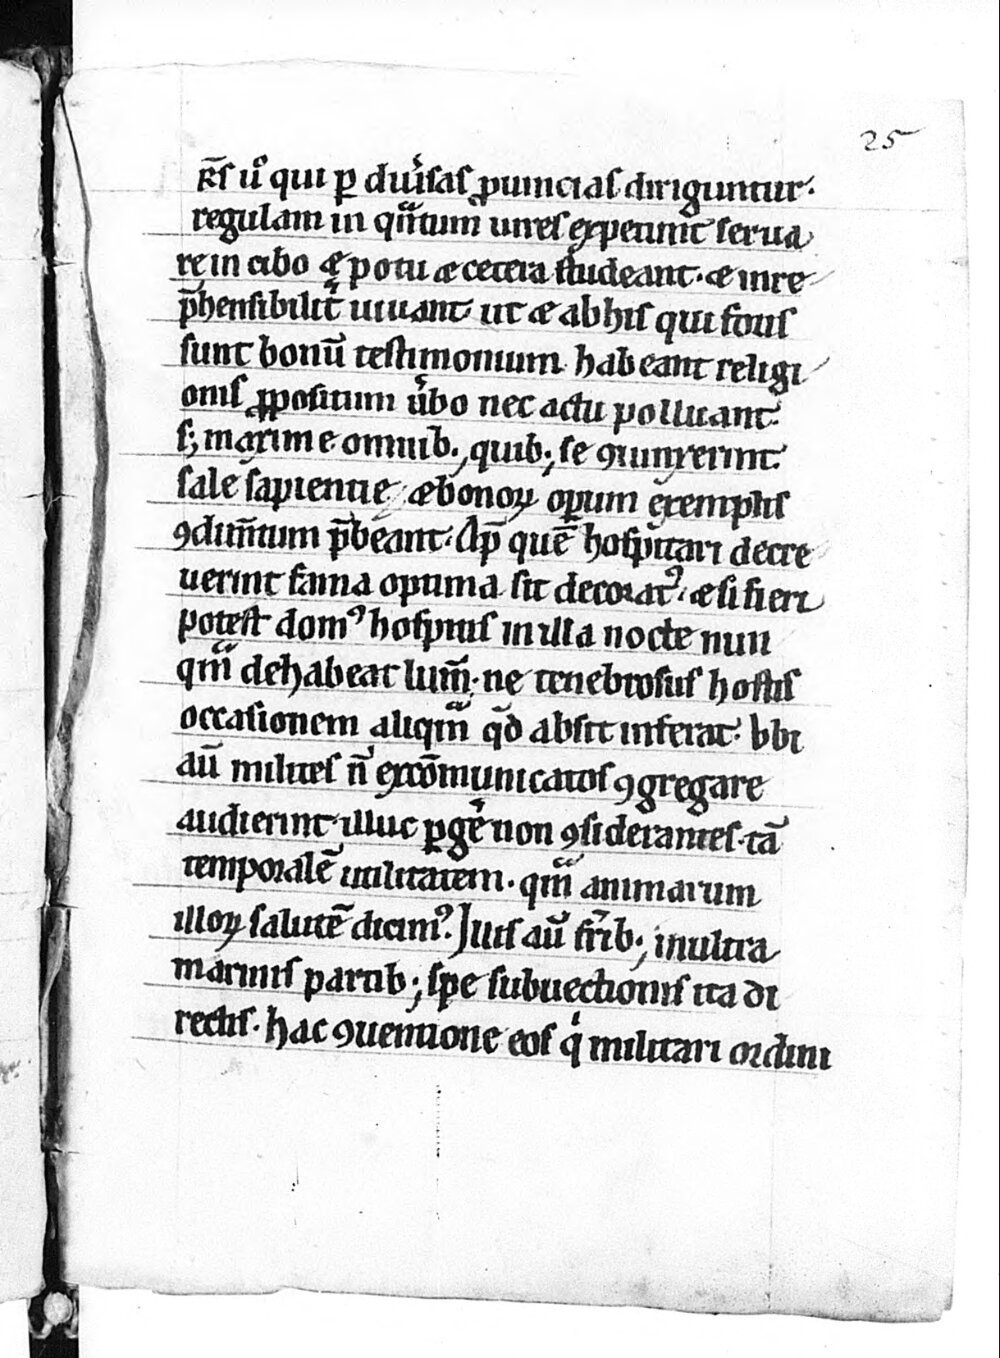 25
Fr̄s ů qui ꝑ duu͛sas ꝓuincias diriguntur·
regulam in qͣntum uires expetunt serua
re in cibo & potu & cetera studeant· & inre
p̄hensibilit͛ uiuant ut & ab his qui foris
sunt bonū testimonium habeant religi
onis ꝓpositum u͛bo nec actu polluant·
s; maxime omnib; quib; se ꝯiunxerint
sale sapientie & bonoꝝ oꝑum exemplis
ꝯdimn̄tum p̄beant· Ap̄ quē hospitari decre
uerint fama optima sit decoratꝰ· & si fieri
potest domꝰ hospitis in illa nocte nun
qͣm dehabeat lum̄· ne tenebrosus hostis
occasionem aliqͣm qd̄ absit inferat· Vbi
aū milites n̄ excōmunicatos ꝯgregare
audierint illuc ꝑge͛ non ꝯsiderantes tā
temporalē utilitatem· qͣm animarum
illoꝝ salutē dicimꝰ· Illis aū fr̄ib; in ultra
marinis partib; spe subuectionis ita di
rectis· hac ꝯuentione eos qͥ militari ordini